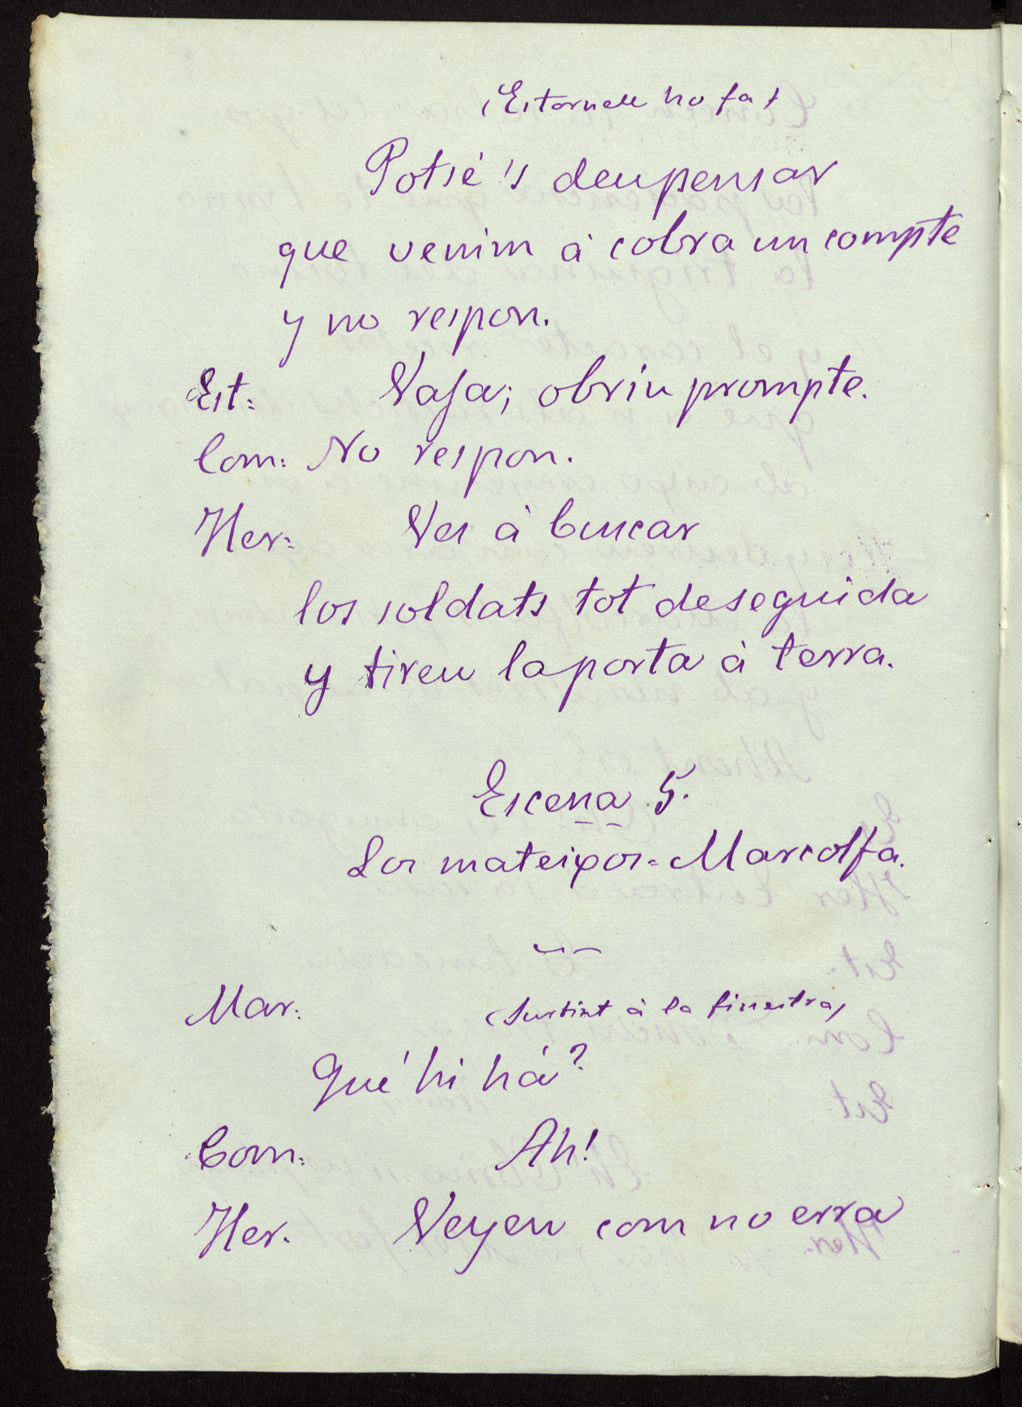 (Estornell ho fa)
Potsé 's deu pensar
que venim á cobra un compte
y no respon.
Est: Vaja; obriu prompte.
Com: No respon.
Her: Ves á buscar
los soldats tot deseguida
y tireu la porta á terra.
Escena 5.
Los mateixos = Marcolfa.
Mar: (Surtint á la finestra)
Qué hi há?
Com: Ah!
Her. Veyeu com no erra